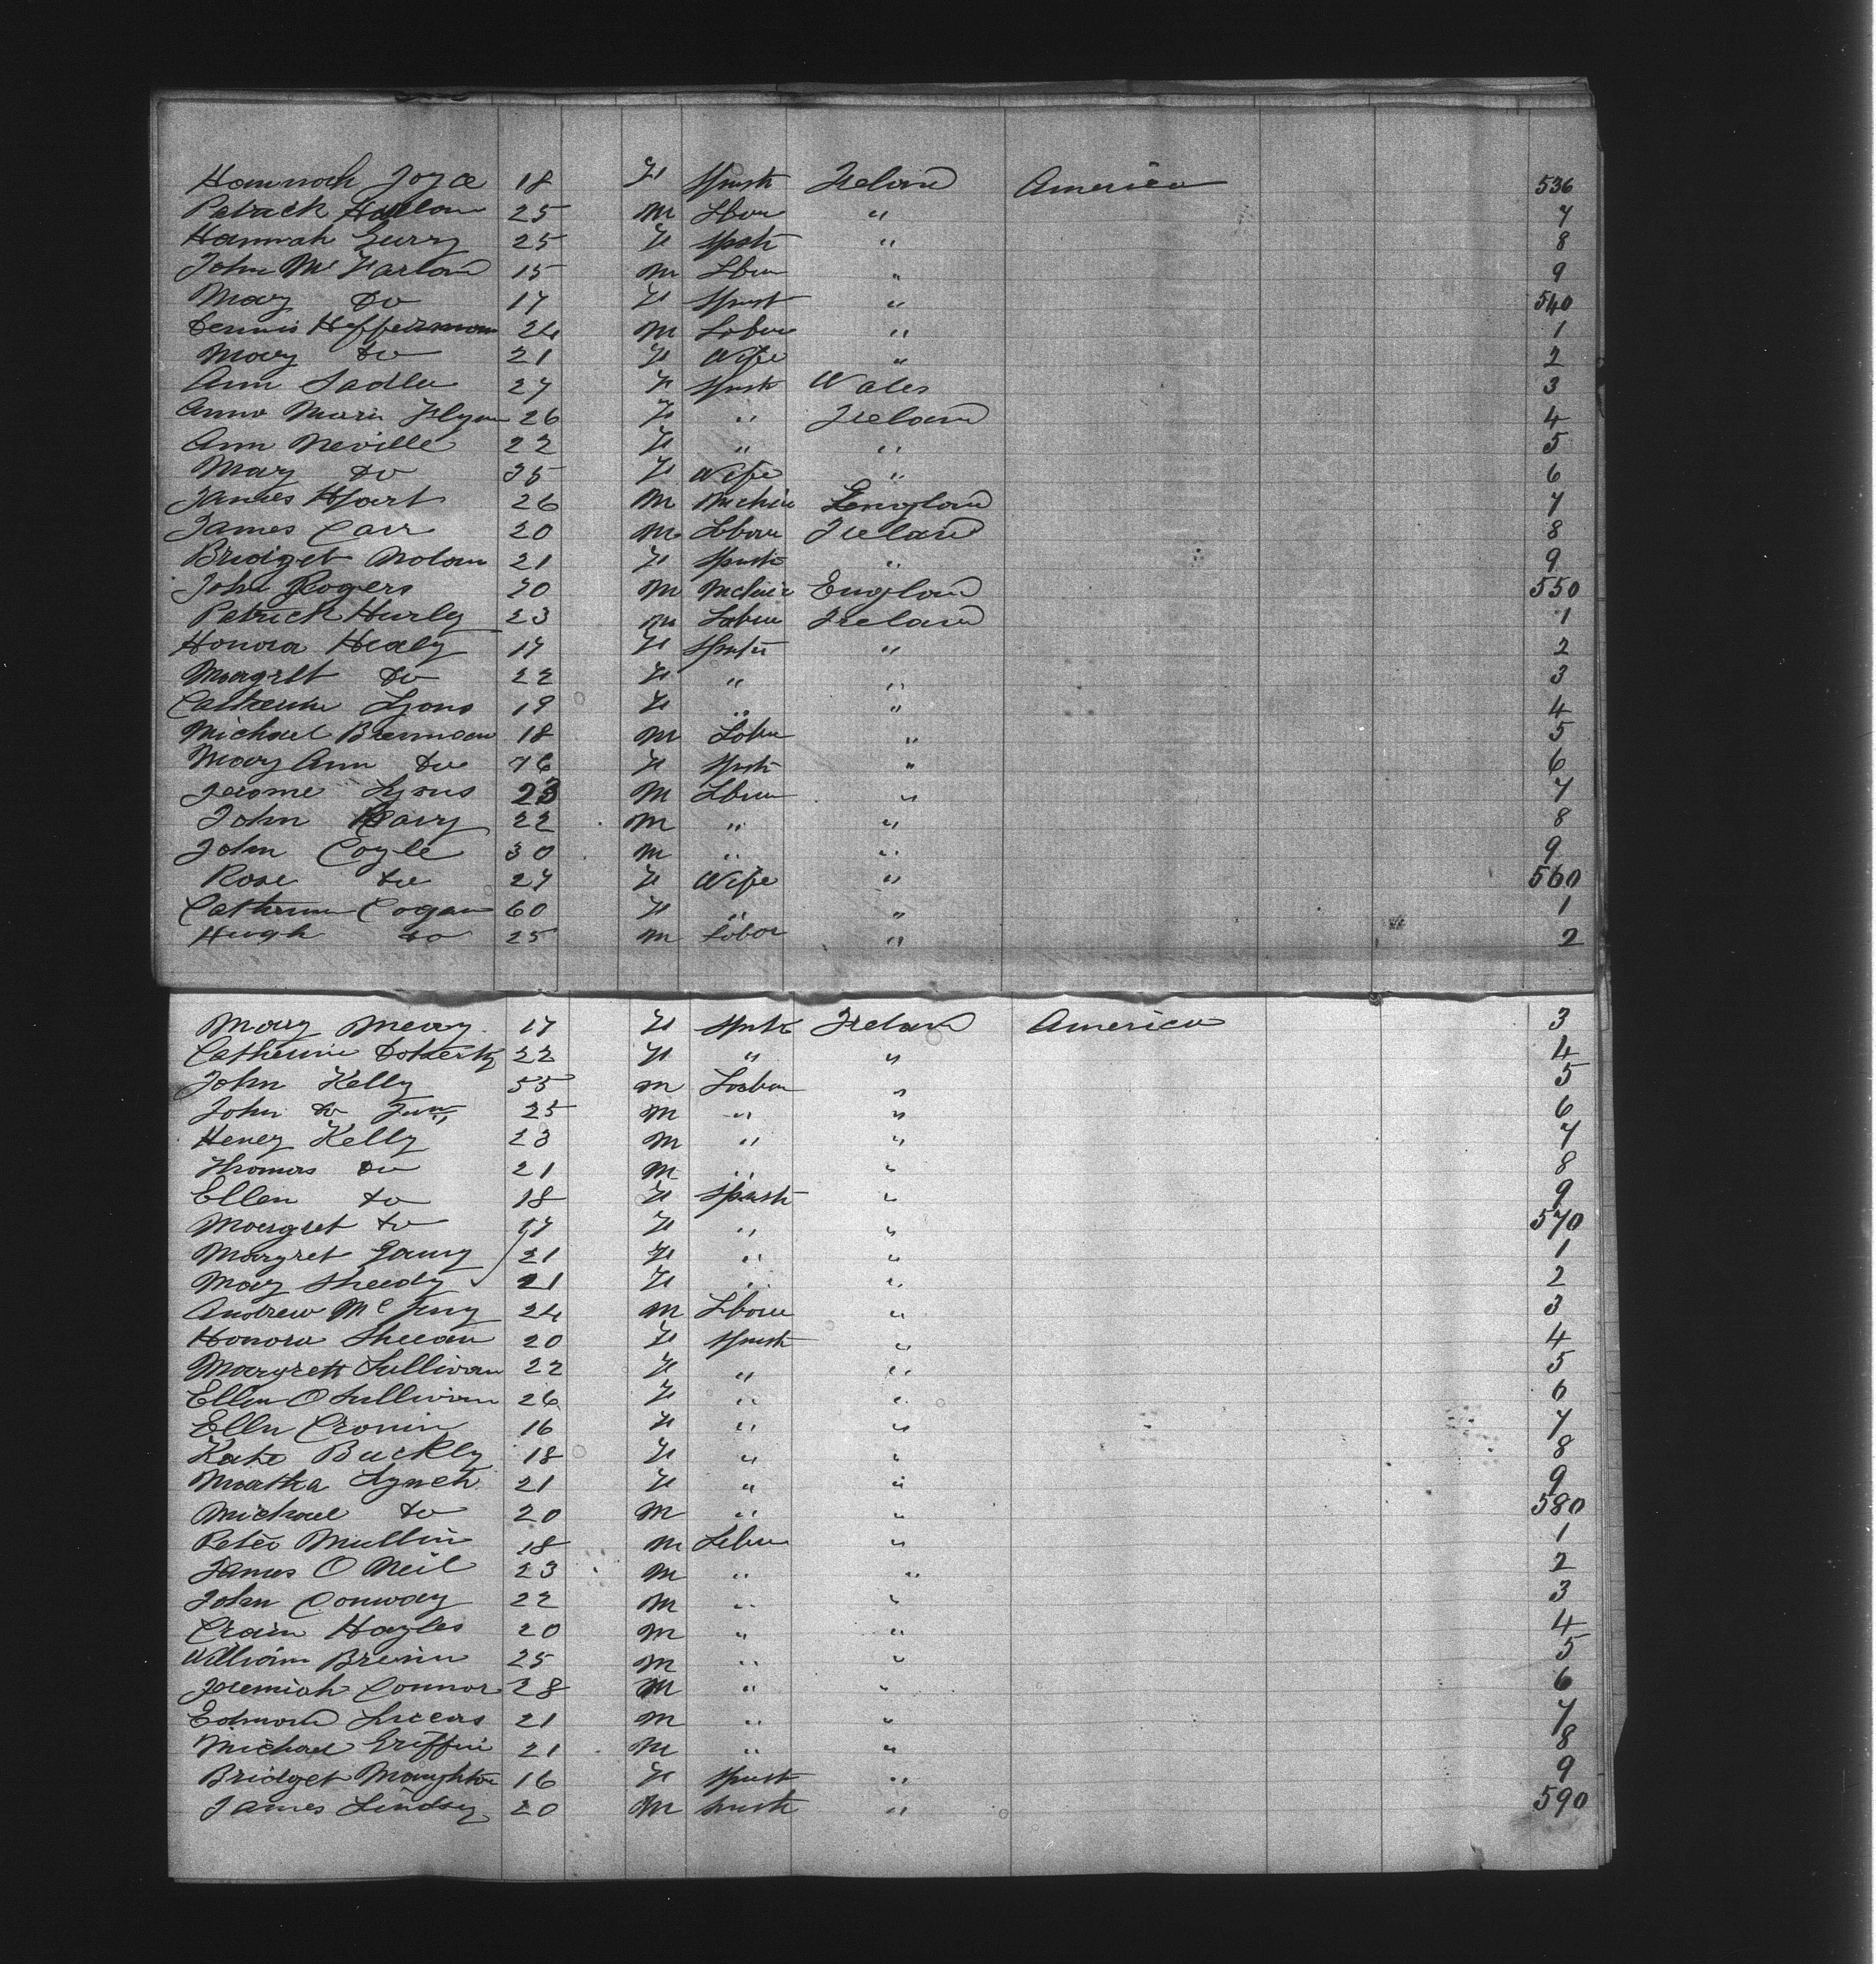 Hannah Joyce 18 F Spinstr Ireland America 536
Patrick Hanlon 25 M Lbour " 7
Hannah Gurry 25 F Spstr " 8
John McFarland 15 M Lbour " 9
Mary Do 17 F Spinst " 540
Dennis Heffernan 24 M Labour " 1
Mary Do 21 F Wife " 2
Ann Sadler 27 F Spinstr Wales 3
Anna Maria Flynn 26 F " Ireland 4
Ann Neville 22 F " " 5
Mary Do 35 F Wife " 6
James Hart 26 M England 7
James Carr 20 M Lbour Ireland 8
Bridget Nolan 21 F Spinstr " 9
John Rogers 20 M England 550
Patrick Hurly 23 M Labour Ireland 1
Honora Healy 17 F Spinstr " 2
Margret Do 22 F " " 3
Catherine Lyons 19 F " " 4
Michael Brennan 18 M Lobur " 5
Mary Ann Do F Spinstr " 6
Jerome Lyons 23 M Lbour " 7
John 22 M " " 8
John Coyle 30 M " " 9
Rose Do 27 F Wife " 560
Catherine Cogan 60 F " " 1
Hugh Do 25 M Lobor " 2
Mary Meay 17 F Spinstr Ireland America 3
Catherine Doherty 22 F " " 4
John Kelly 55 M Labour " 5
John Do Junr 25 M " " 6
Henry Kelly 23 M " " 7
Thomas Do 21 M " " 8
Ellen Do 18 F Spinstr " 9
Margret Do 17 F " " 570
Margret 21 F " " 1
May Sheedy 21 F " " 2
Andrew Mc 24 M Lbour " 3
Honora Sheean 20 F Spinstr " 4
Margrett Sullivan 22 F " " 5
Ellen O Sullivan 26 F " " 6
Ellen Cronin 16 F " " 7
Kate Buckly 18 F " " 8
Martha Lynch 21 F " " 9
Michael Do 20 M " " 580
Peter Mullin 18 M Lbour " 1
James O Neil 23 M " " 2
John Conway 22 M " " 3
Hayles 20 M " " 4
William 25 M " " 5
Jeremiah Connor 28 M " " 6
Edmond 21 M " " 7
Michael Griffin 21 M " " 8
Bridget Maughton 16 F Spinstr " 9
James Lindsey 20 M " 590